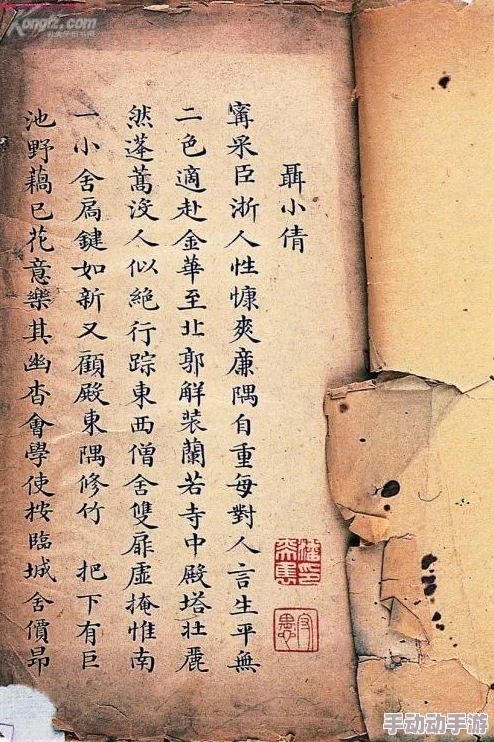 Kongfz.com
孔夫子旧书网
聶小倩
甯采臣浙人性慷爽廉隅自重每對人言生平無
二色適赴金華至北郭解装蘭若寺中殿塔壯麗
然蓬蒿没人似絕行踪東西僧舍雙扉虛掩惟南
一小舍扃鍵如新又顧殿東隅修竹 把下有巨
池野藕已花意樂其幽杳會學使按臨城舍價昂
守愚
手动动手游